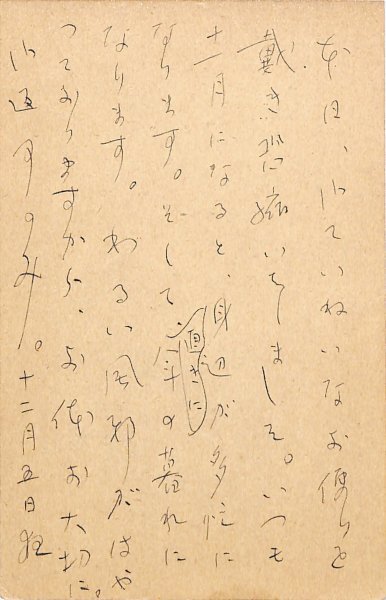 本日、御ていねいなお便りを
戴き恐縮いたしました。いつも
十一月になると、身辺が多忙に
なります。そして、直ぎに年の暮れに
なります。わるい風邪がはや
つておりますから、お体お大切に。
御返事のみ。十二月五日